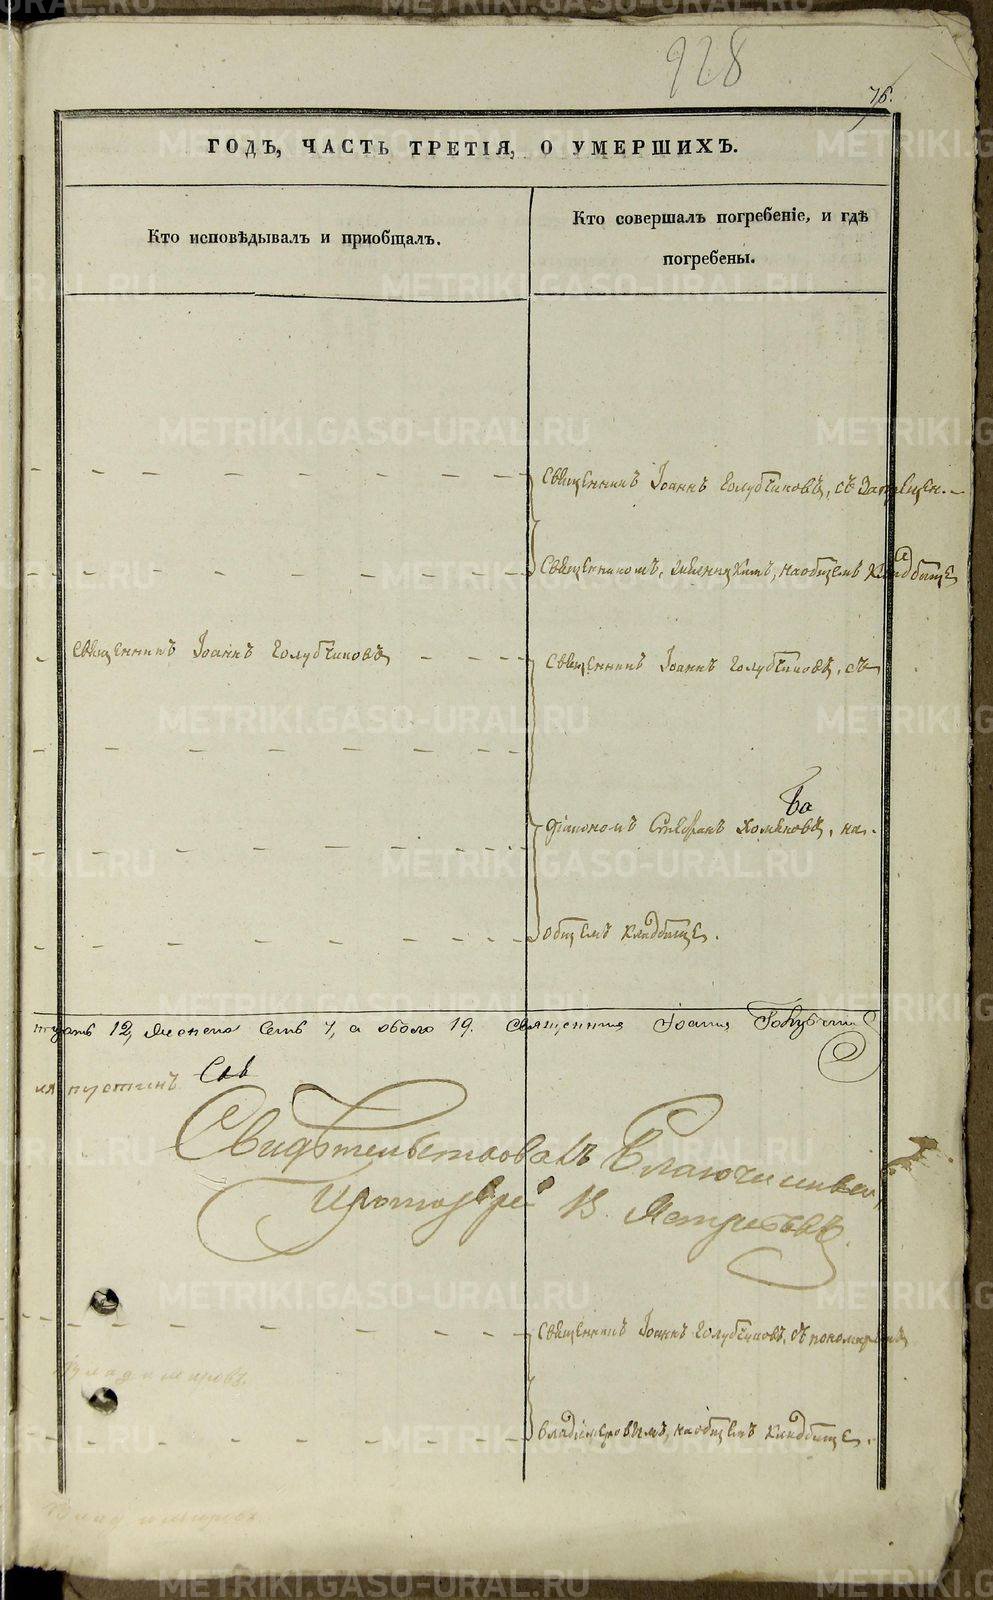 928
76.
ГОДЪ, ЧАСТЬ ТРЕТІЯ, О УМЕРШИХЪ.
Кто исповѣдывалъ и приобщалъ.
Кто совершалъ погребеніе, и гдѣ
погребены.
Священникъ Іоаннъ Голубчиковъ, съ
Священникомъ, на общемъ кладбище
Священникъ Іоаннъ Голубчиковъ
Священникъ Іоаннъ Голубчиковъ, съ
діакономъ Стефан Хомяковъ, на
общемъ кладбище.
12, женска семь 7, а обоего 19. Священник Іоанн Голубчик
Свидѣтельствовалъ Благочинный,
Протоіерей В. Ястребовъ.
Священникъ Іоаннъ Голубчиковъ, съ пономаремъ
Владиміровымъ, на общемъ кладбище.
METRIKI.GASO-URAL.RU